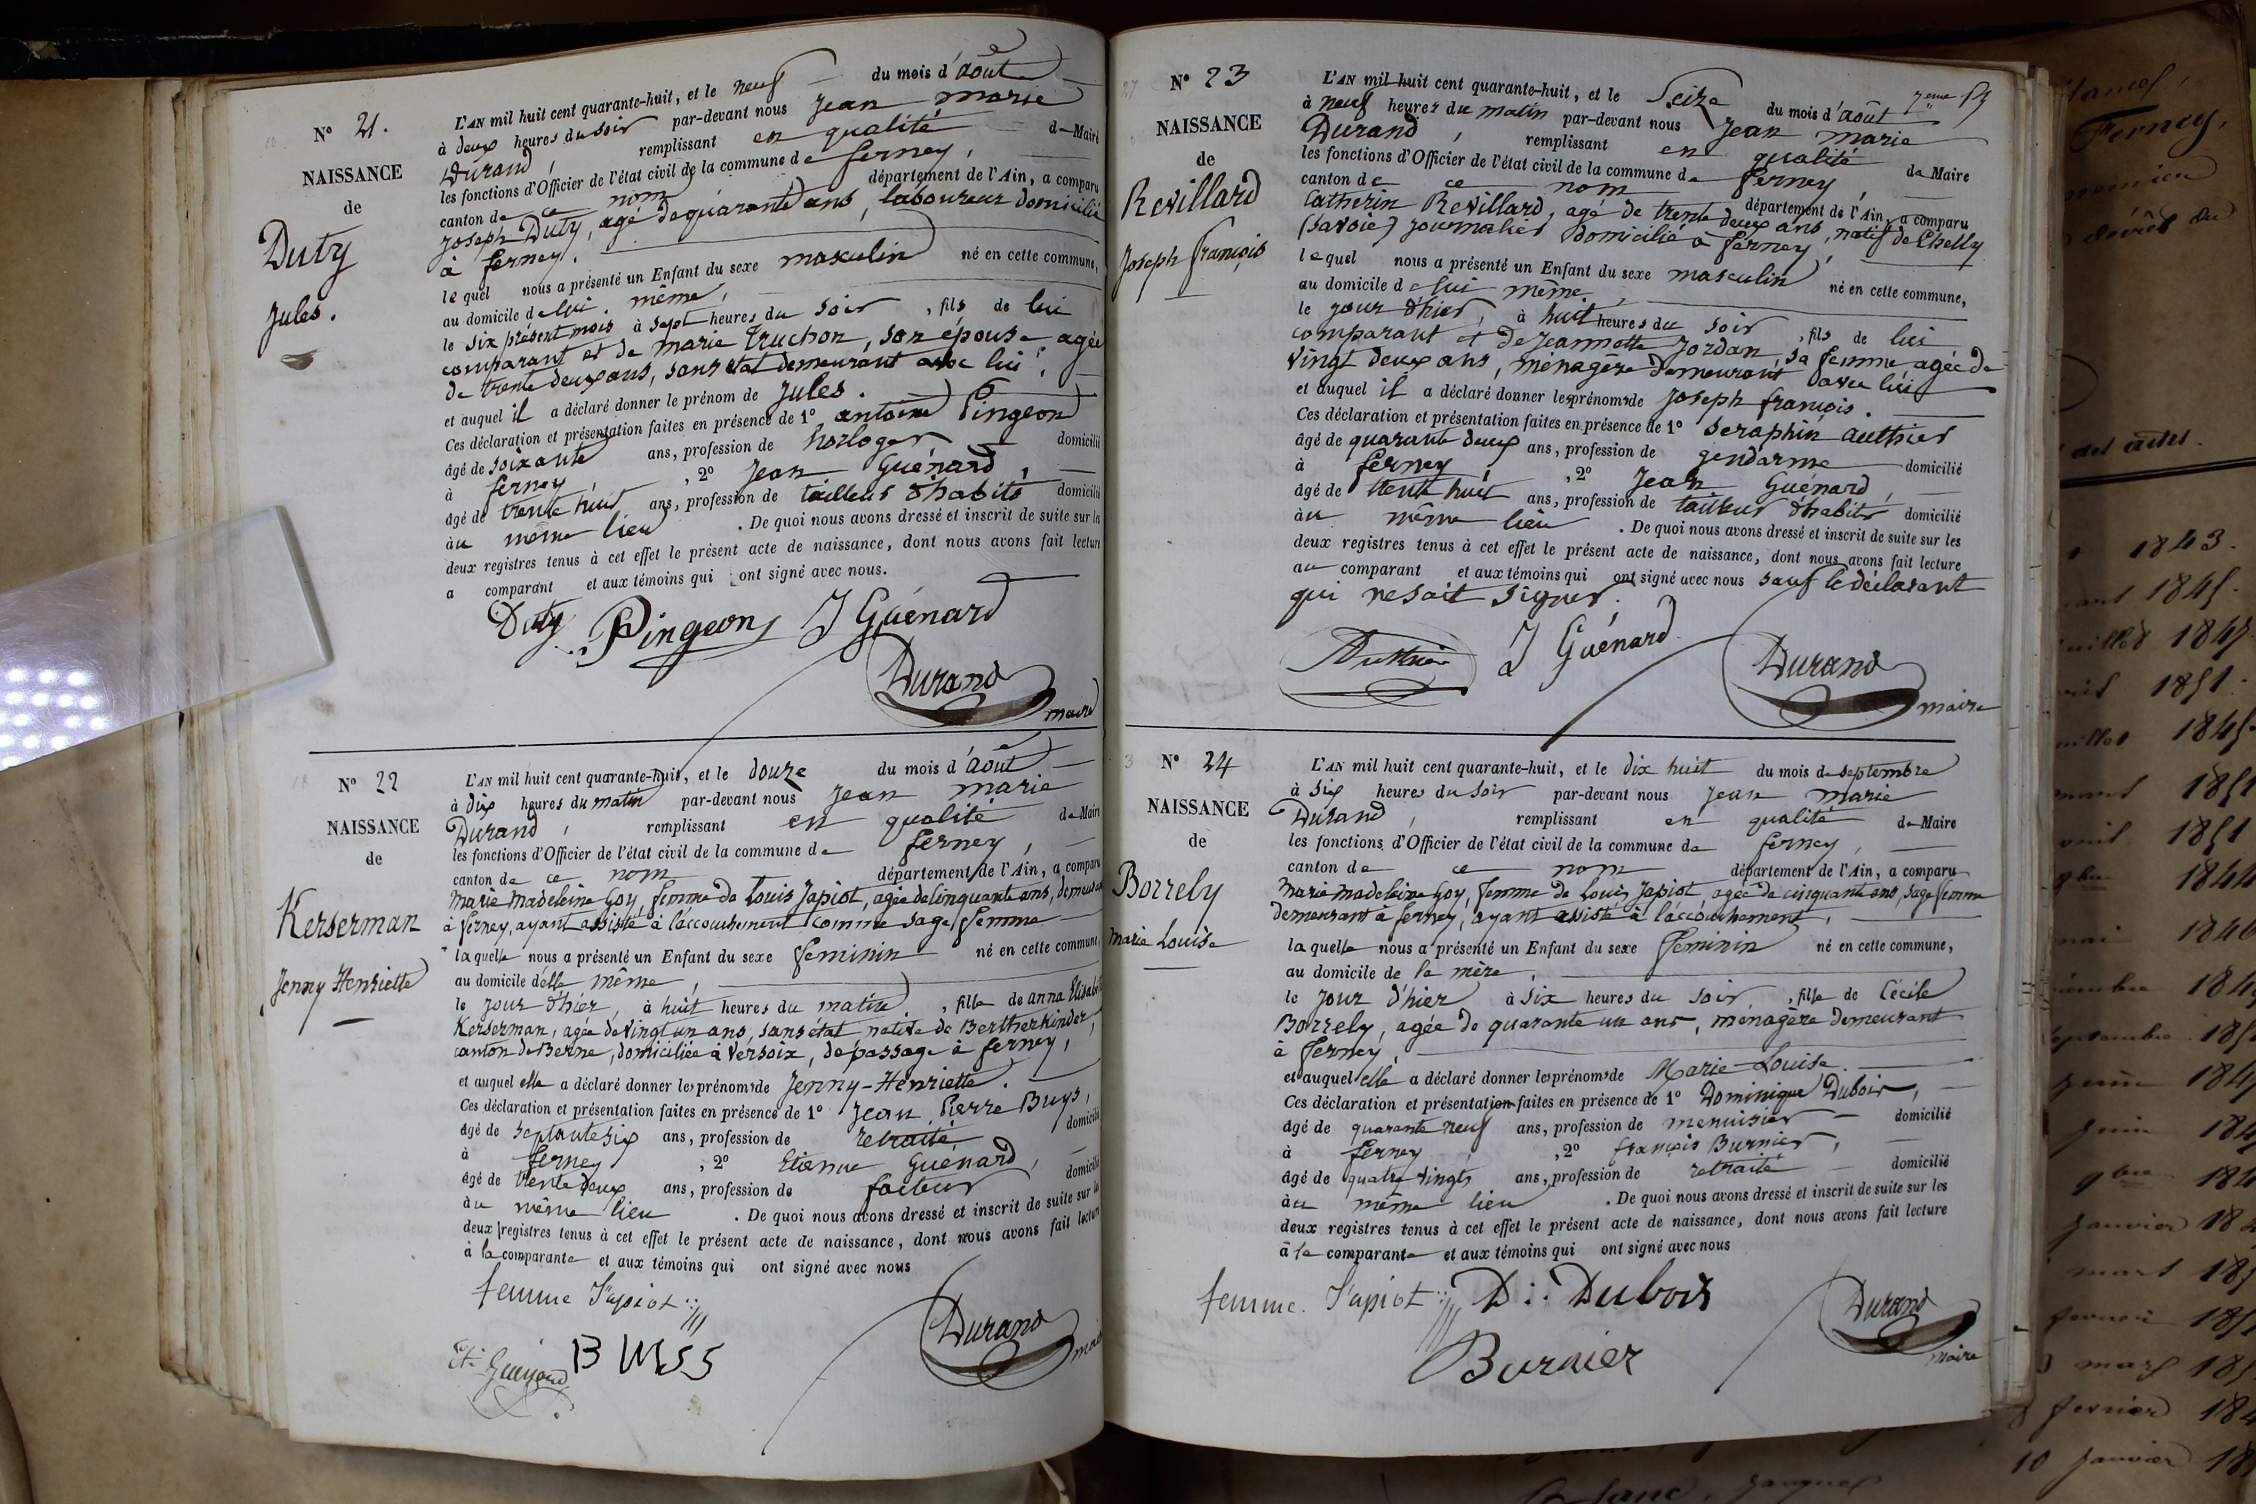 N° 21.
NAISSANCE
de
Duty
Jules.
L'AN mil huit cent quarante-huit, et le neuf du mois d'août
à deux heures du soir par-devant nous Jean marie
Durand, remplissant en qualité de Maire
les fonctions d'Officier de l'état civil de la commune de ferney,
canton de ce nom département de l'Ain, a comparu
Joseph Duty, agé de quarante ans, laboureur domicilié
à ferney.
lequel nous a présenté un Enfant du sexe masculin né en cette commune,
au domicile de lui même,
le six présent mois à sept heures du soir, fils de lui
comparant et de marie Truchon, son épouse agée
de trente deux ans, sans état demeurant avec lui,
et auquel il a déclaré donner le prénom de Jules.
Ces déclaration et présentation faites en présence de 1° antoine Pingeon
âgé de soixante ans, profession de horloger domicilié
à ferney, 2° Jean Guénard,
âgé de trente huit ans, profession de tailleur d'habits domicilié
au même lieu. De quoi nous avons dressé et inscrit de suite sur les
deux registres tenus à cet effet le présent acte de naissance, dont nous avons fait lecture
a comparant et aux témoins qui ont signé avec nous.
Duty Pingeon J Guénard
Durand
maire
N° 22
NAISSANCE
de
Kerserman
Jenny Henriette
L'AN mil huit cent quarante-huit, et le douze du mois d'août
à dix heures du matin par-devant nous Jean marie
Durand, remplissant en qualité de Maire
les fonctions d'Officier de l'état civil de la commune de ferney,
canton de ce nom département de l'Ain, a comparu
Marie Madeleine Goy, femme de Louis Japiot, agée de cinquante ans, demeurant
à ferney, ayant assisté à l'accouchement comme sage femme
laquelle nous a présenté un Enfant du sexe féminin né en cette commune,
au domicile d'elle même,
le jour d'hier, à huit heures du matin, fille de anna Elisabeth
Kerserman, agée de vingt un ans, sans état native de Bertherkinder,
canton de Berne, domiciliée à Versoix, de passage à ferney,
et auquel elle a déclaré donner les prénoms de Jenny-Henriette.
Ces déclaration et présentation faites en présence de 1° Jean Pierre Buys,
âgé de septante six ans, profession de retraité domicilié
à ferney, 2° Etienne Guénard,
âgé de trente deux ans, profession de facteur domicilié
au même lieu. De quoi nous avons dressé et inscrit de suite sur les
deux registres tenus à cet effet le présent acte de naissance, dont nous avons fait lecture
à la comparante et aux témoins qui ont signé avec nous
femme Japiot
Durand
maire
Et. Guénard
N° 23
NAISSANCE
de
Revillard
Joseph françois
L'AN mil huit cent quarante-huit, et le Seize du mois d'août
à neuf heures du matin par-devant nous Jean marie
Durand, remplissant en qualité de Maire
les fonctions d'Officier de l'état civil de la commune de ferney,
canton de ce nom département de l'Ain, a comparu
Catherin Revillard, agé de trente deux ans, natif de Chelly
(Savoie) journalier domicilié à ferney,
lequel nous a présenté un Enfant du sexe masculin né en cette commune,
au domicile de lui même,
le jour d'hier, à huit heures du soir, fils de lui
comparant et de Jeannette Jordan, sa femme agée de
vingt deux ans, ménagère demeurant avec lui
et auquel il a déclaré donner les prénoms de Joseph françois.
Ces déclaration et présentation faites en présence de 1° Seraphin authier
âgé de quarante deux ans, profession de gendarme domicilié
à ferney, 2° Jean Guénard,
âgé de trente huit ans, profession de tailleur d'habits domicilié
au même lieu. De quoi nous avons dressé et inscrit de suite sur les
deux registres tenus à cet effet le présent acte de naissance, dont nous avons fait lecture
au comparant et aux témoins qui ont signé avec nous sauf le déclarant
qui ne sait signer.
Authier J Guénard
Durand
maire
N° 24
NAISSANCE
de
Borrely
Marie Louise
L'AN mil huit cent quarante-huit, et le dix huit du mois de septembre
à six heures du soir par-devant nous Jean Marie
Durand, remplissant en qualité de Maire
les fonctions d'Officier de l'état civil de la commune de ferney,
canton de ce nom département de l'Ain, a comparu
Marie Madeleine Goy, femme de Louis Japiot agée de cinquante ans, sage femme
demeurant à ferney, ayant assisté à l'accouchement,
laquelle nous a présenté un Enfant du sexe féminin né en cette commune,
au domicile de la mère,
le jour d'hier à six heures du soir, fille de Cécile
Borrely, agée de quarante un ans, ménagère demeurant
à ferney,
et auquel elle a déclaré donner les prénoms de Marie-Louise.
Ces déclaration et présentation faites en présence de 1° Dominique Dubois,
âgé de quarante neuf ans, profession de menuisier domicilié
à ferney, 2° françois Burnier,
âgé de quatre vingts ans, profession de retraité domicilié
au même lieu. De quoi nous avons dressé et inscrit de suite sur les
deux registres tenus à cet effet le présent acte de naissance, dont nous avons fait lecture
à la comparante et aux témoins qui ont signé avec nous
femme. Japiot D. Dubois
Durand
maire
Burnier
Ferney,
1843.
1845.
1851.
mars
1851
1844
mai 1846
septembre
juin
juin
9bre
janvier
mars
fevrier
mars
fevrier
10 janvier